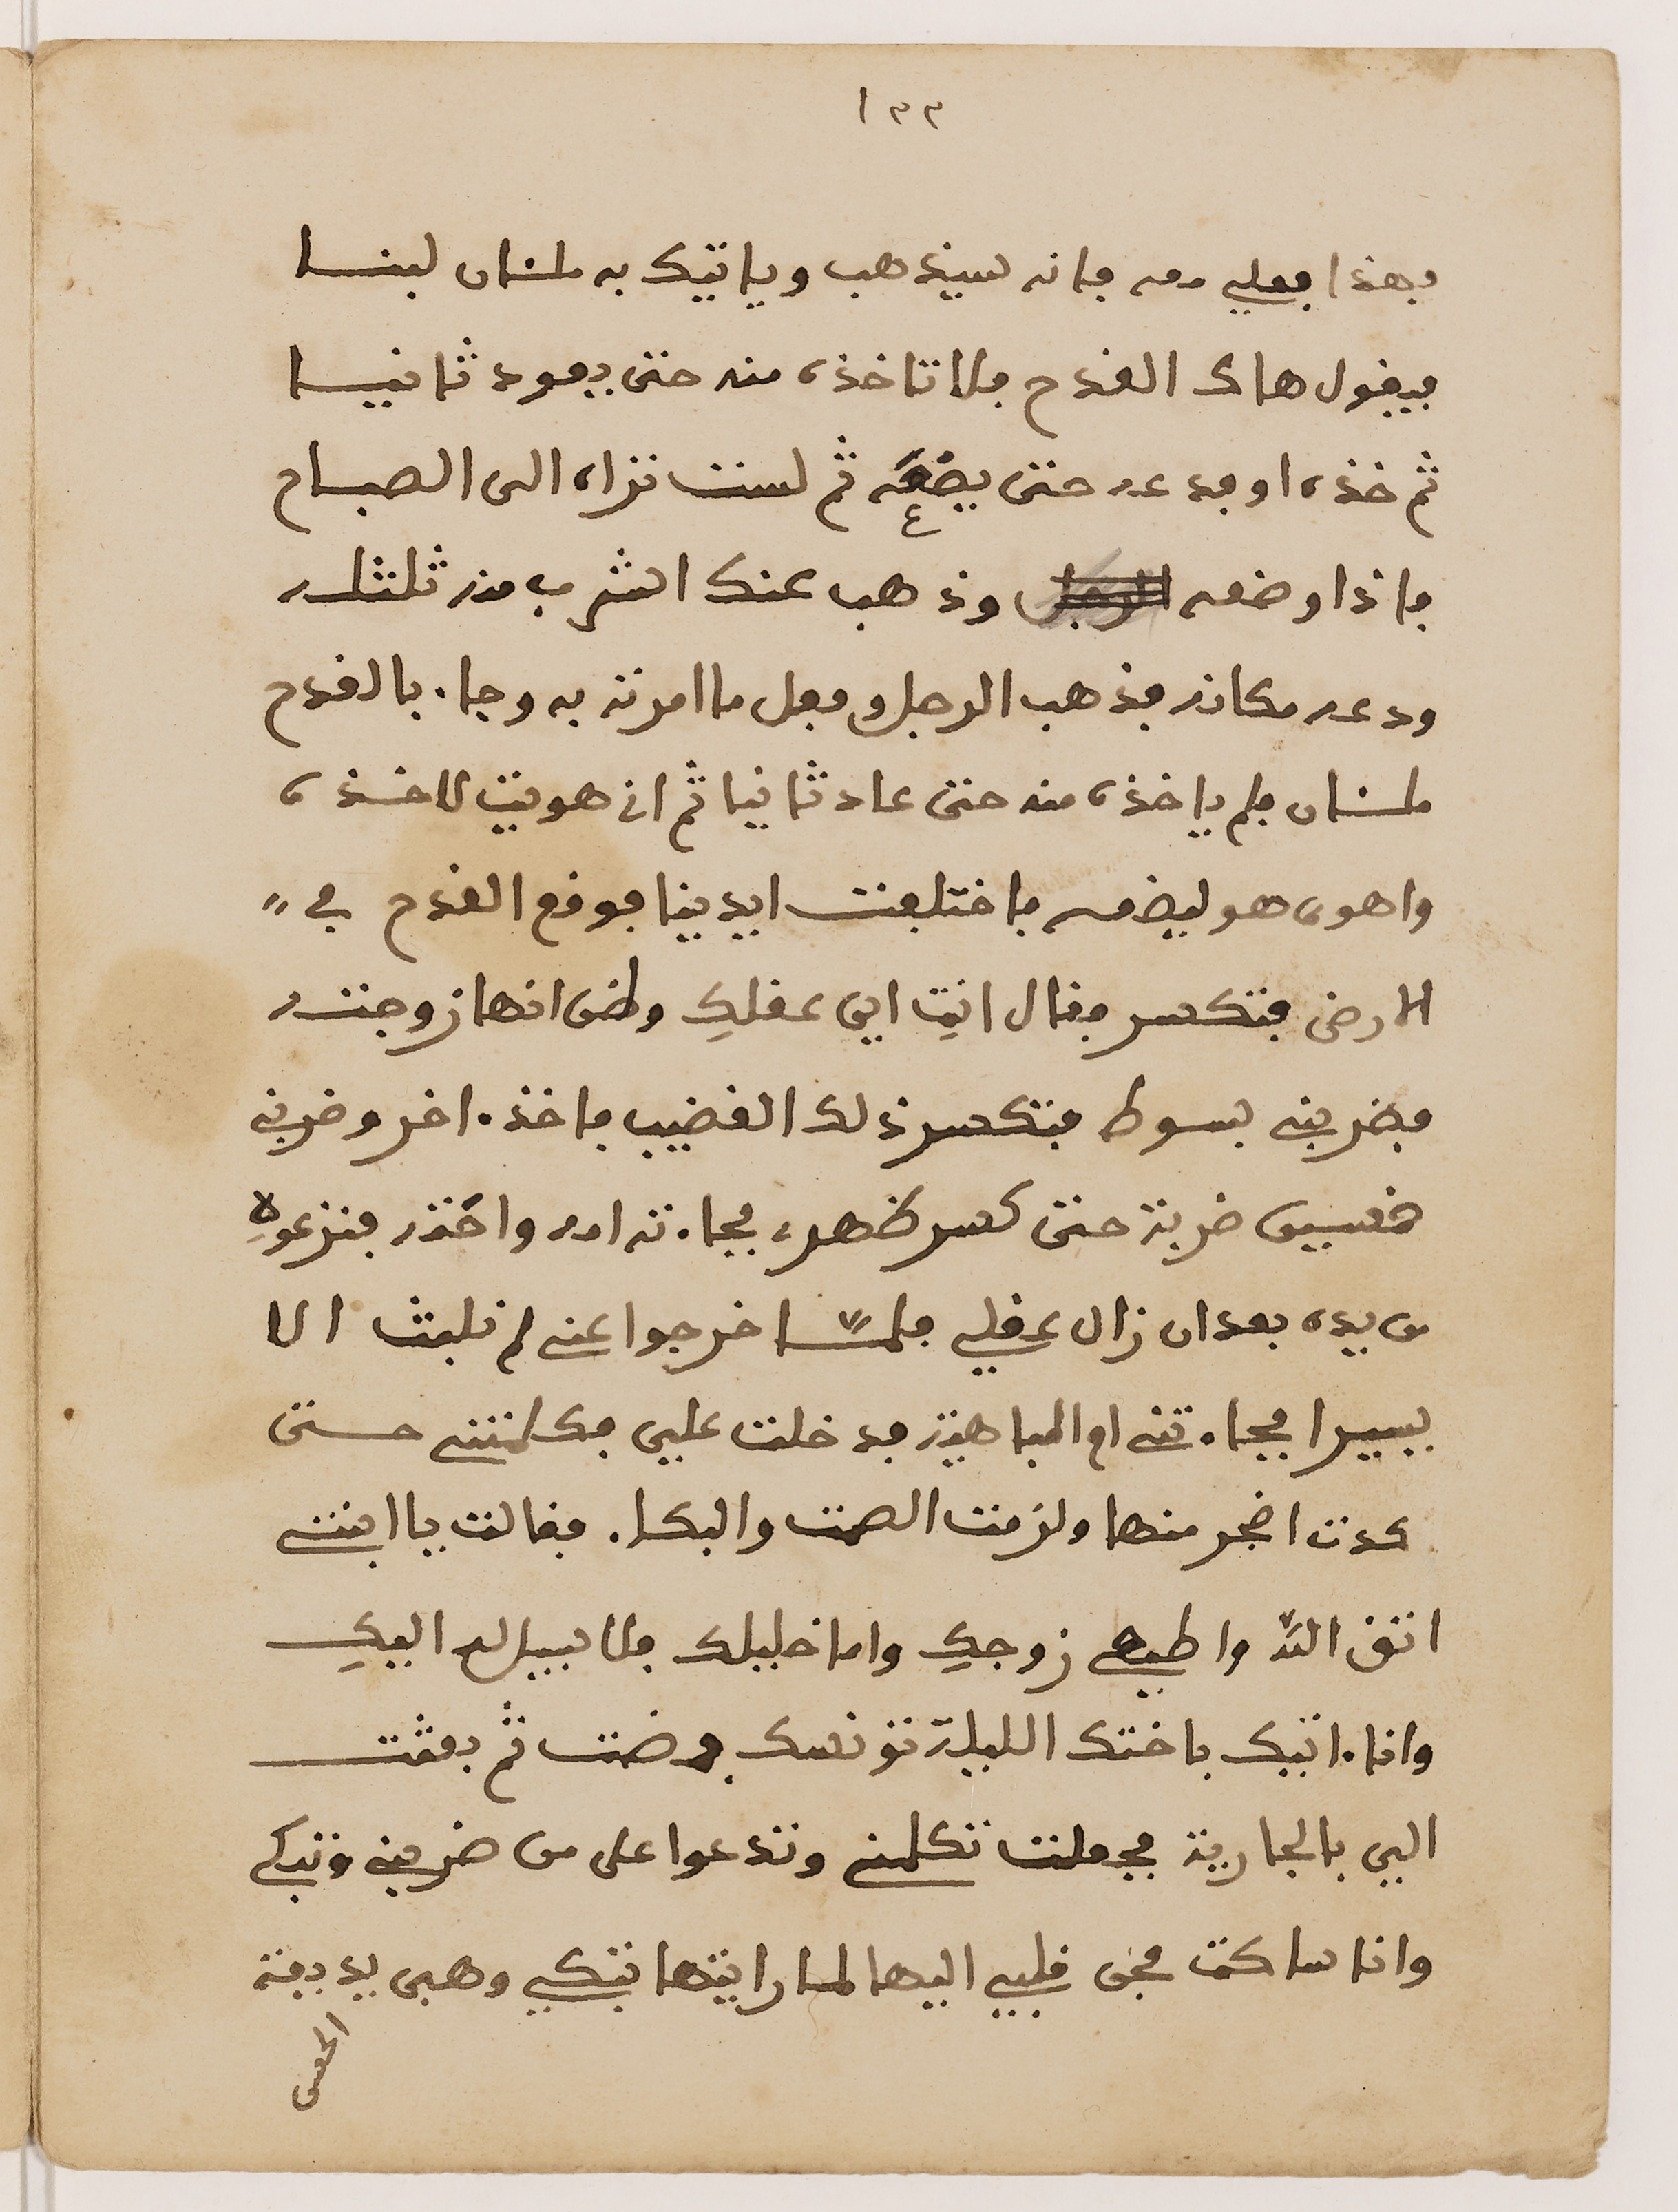 ١٣٣
فهذا فعلي معه فانه سيذهب وياتيك به ملئان لبنا
فيقول هاك القدح فلا تاخذه منه حتى يعود ثانيا
ثم خذه او فدعه حتى يضعه ثم لست تراه الى الصباح
ع
فاذا وضعه الرجل وذهب عنك اشرب منه ثلثه
ودعه مكانه فذهب الرجل وفعل ما امرته به وجاء بالقدح
ملئان فلم ياخذه منه حتى عاد ثانيا ثم اني هويت لاخذه
واهوى هو ليضعه فاختلفت ايدينا فوقع القدح في
الارض فتكسر فقال انتِ اين عقلكِ وظن انها زوجته
فضربني بسوط فتكسر ذلك القضيب فاخذ اخر وضربني
خمسين ضربة حتى كسر ظهره فجاءته امه واخته فنزعوه
من يده بعد ان زال عقلي فلمّا خرجوا عني لم نلبث الا
يسيرا فجاءتني ام المباهية فدخلت علي فكلمتني حتى
كدت اضجر منها ولزمت الصمت والبكاء فقالت يا ابنتي
اتق الله واطيعي زوجكِ واما خليلك فلا سبيل له اليكِ
وانا اتيك باختك الليلة تونسك فمضت ثم بعثت
الي بالجارية فجعلت تكلمني وتدعوا على من ضربني وتبكي
وانا ساكت فحن قلبي اليها لما رايتها تبكي وهي بديعة
الحسن